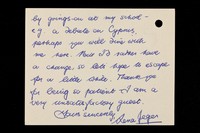 By going on at my school -
e.g. a debate on Cyprus,
perhaps you will dine with
me here. But I'd rather have
a change, so I hope to escape
for a little while. Thank you
for being so patient - I am a
very unsatisfactory guest.
Yours sincerely,
Lena Jeger